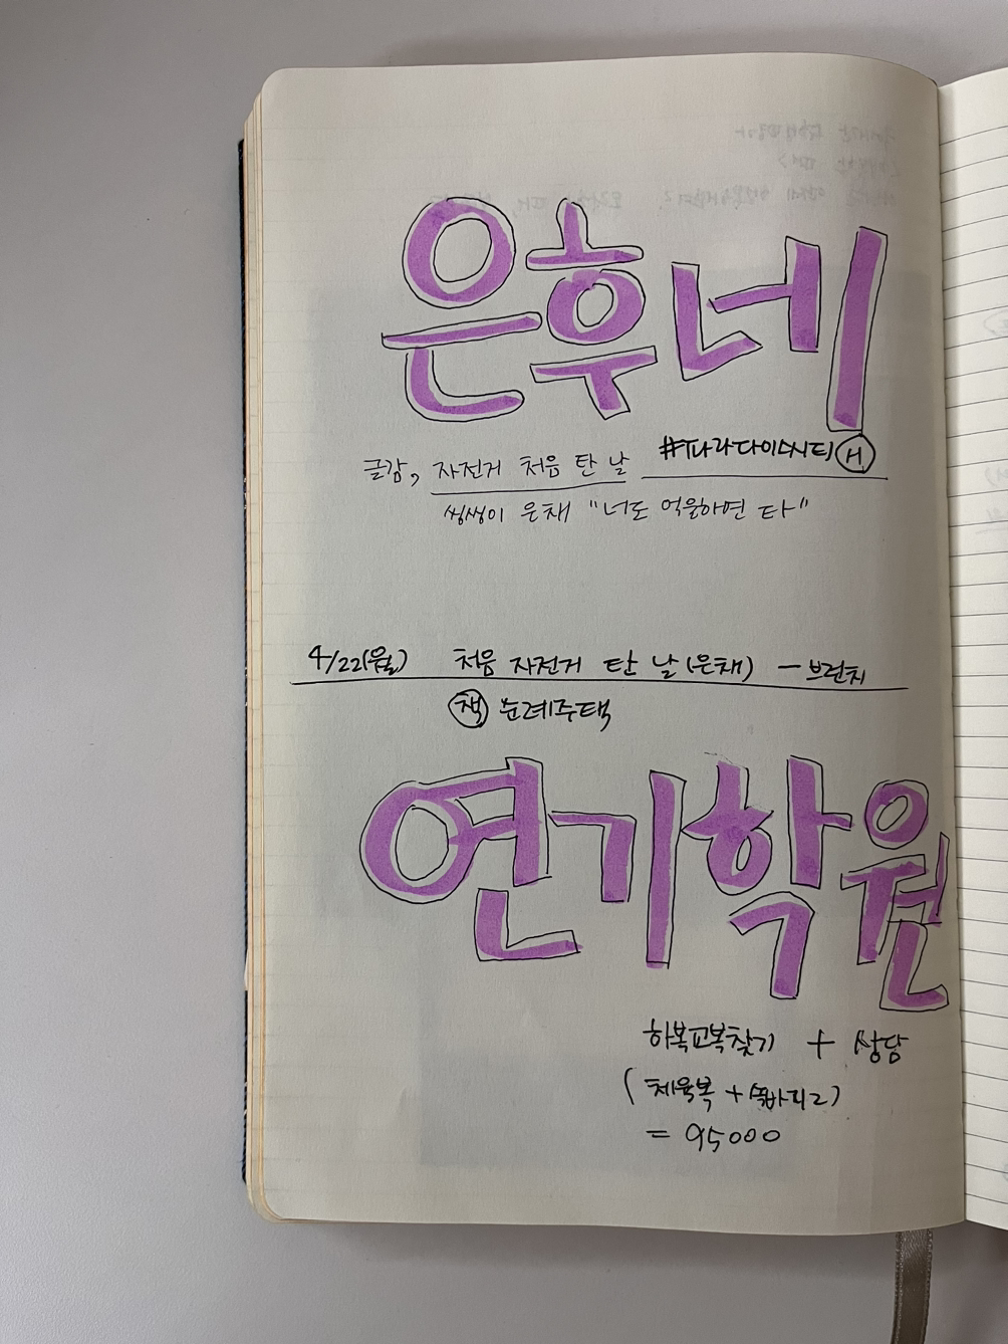 은후네
글감, 자전거 처음 탄 날 #파라다이스시티 H
씽씽이 은채 "너도 억울하면 타"
4/22(월) 처음 자전거 탄 날 (은채) - 브런치
책 순례주택
연기학원
하복교복찾기 + 상담
(체육복 + 속바지2)
= 95000